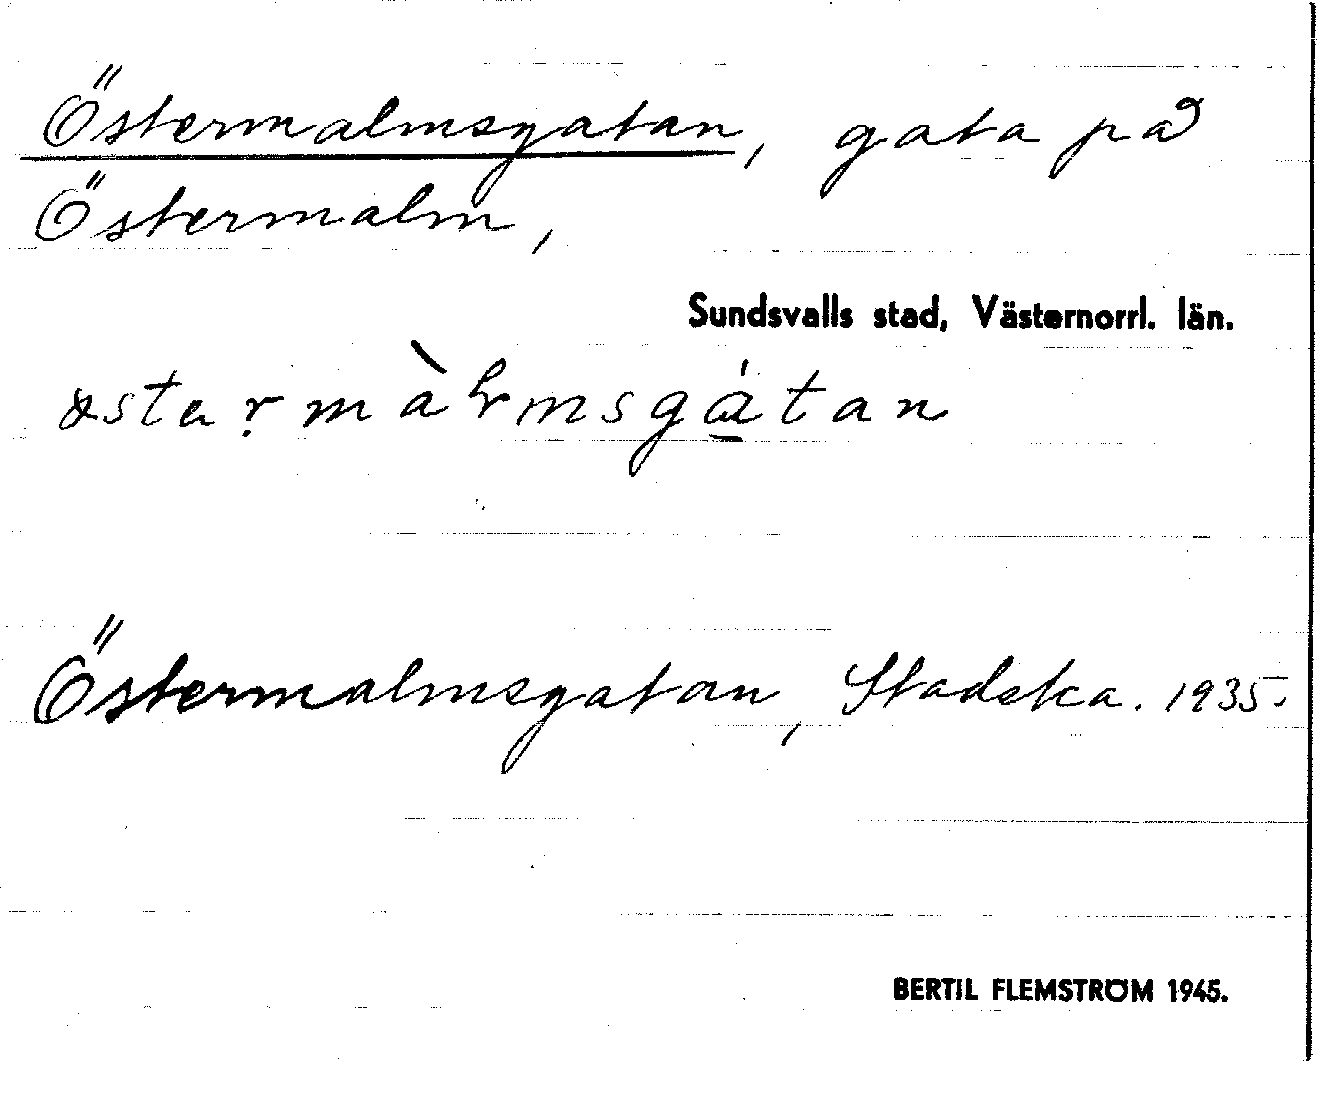 Östermalmsgatan, gata på
Östermalm,
Sundsvalls stad, Västernorrl. län.
Östermalmsgatan, Stadska. 1935.
BERTIL FLEMSTRÖM 1945.